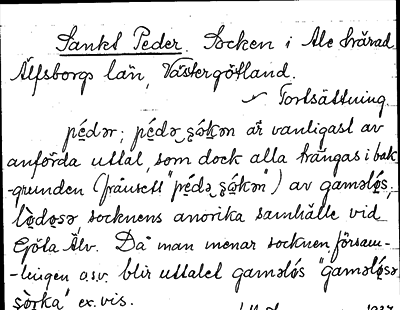 Sankt Peder. Socken i Ale härad
Älfsborgs län, Västergötland.
Fortsättning.
pédər; pédə sókən är vanligast av
anförda uttal, som dock alla trängas i bak-
-grunden (frånsett "pédə sókən") av gaməlǿs;
lø̀døsə socknens anorika samhälle vid
Göta Älv. Då man menar socknen, försam-
-lingen o.s.v. blir uttalet gaməlós "gaməlǿsə
sòrka" ex. vis.